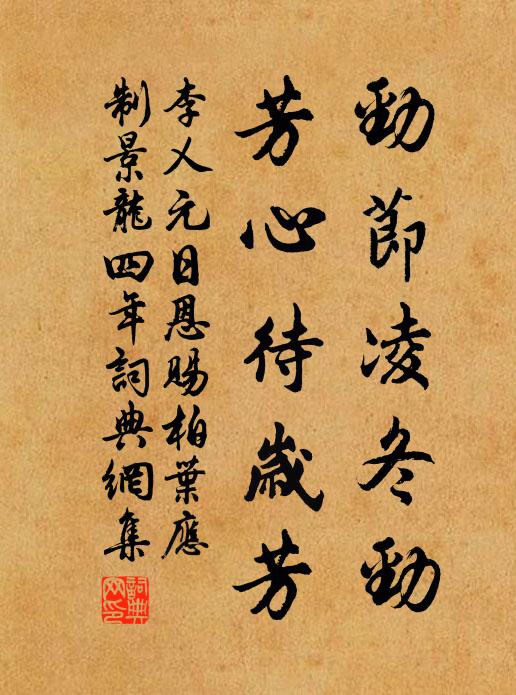 勁節凌冬勁
芳心待歲芳
李乂元日恩賜柏葉應
制景龍四年詞典網集
詞典
网印